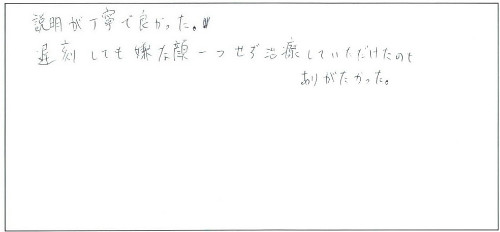 説明が丁寧で良かった。
遅刻しても嫌な顔一つせず治療していただけたのも
ありがたかった。